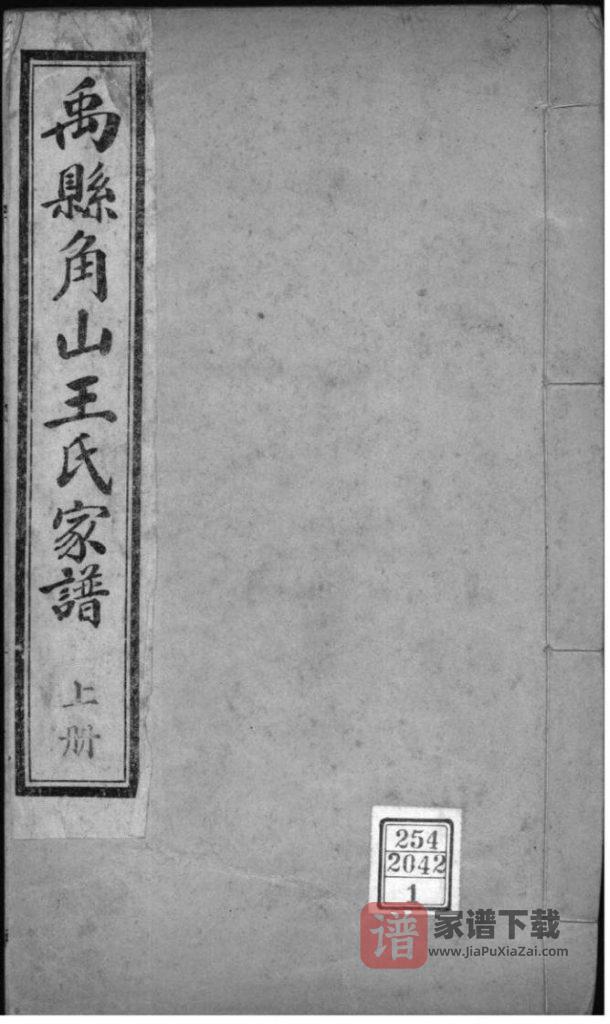 禹縣角山王氏家譜
上册
254
2042
1
谱
家谱下载
www.JiaPuXiaZai.com